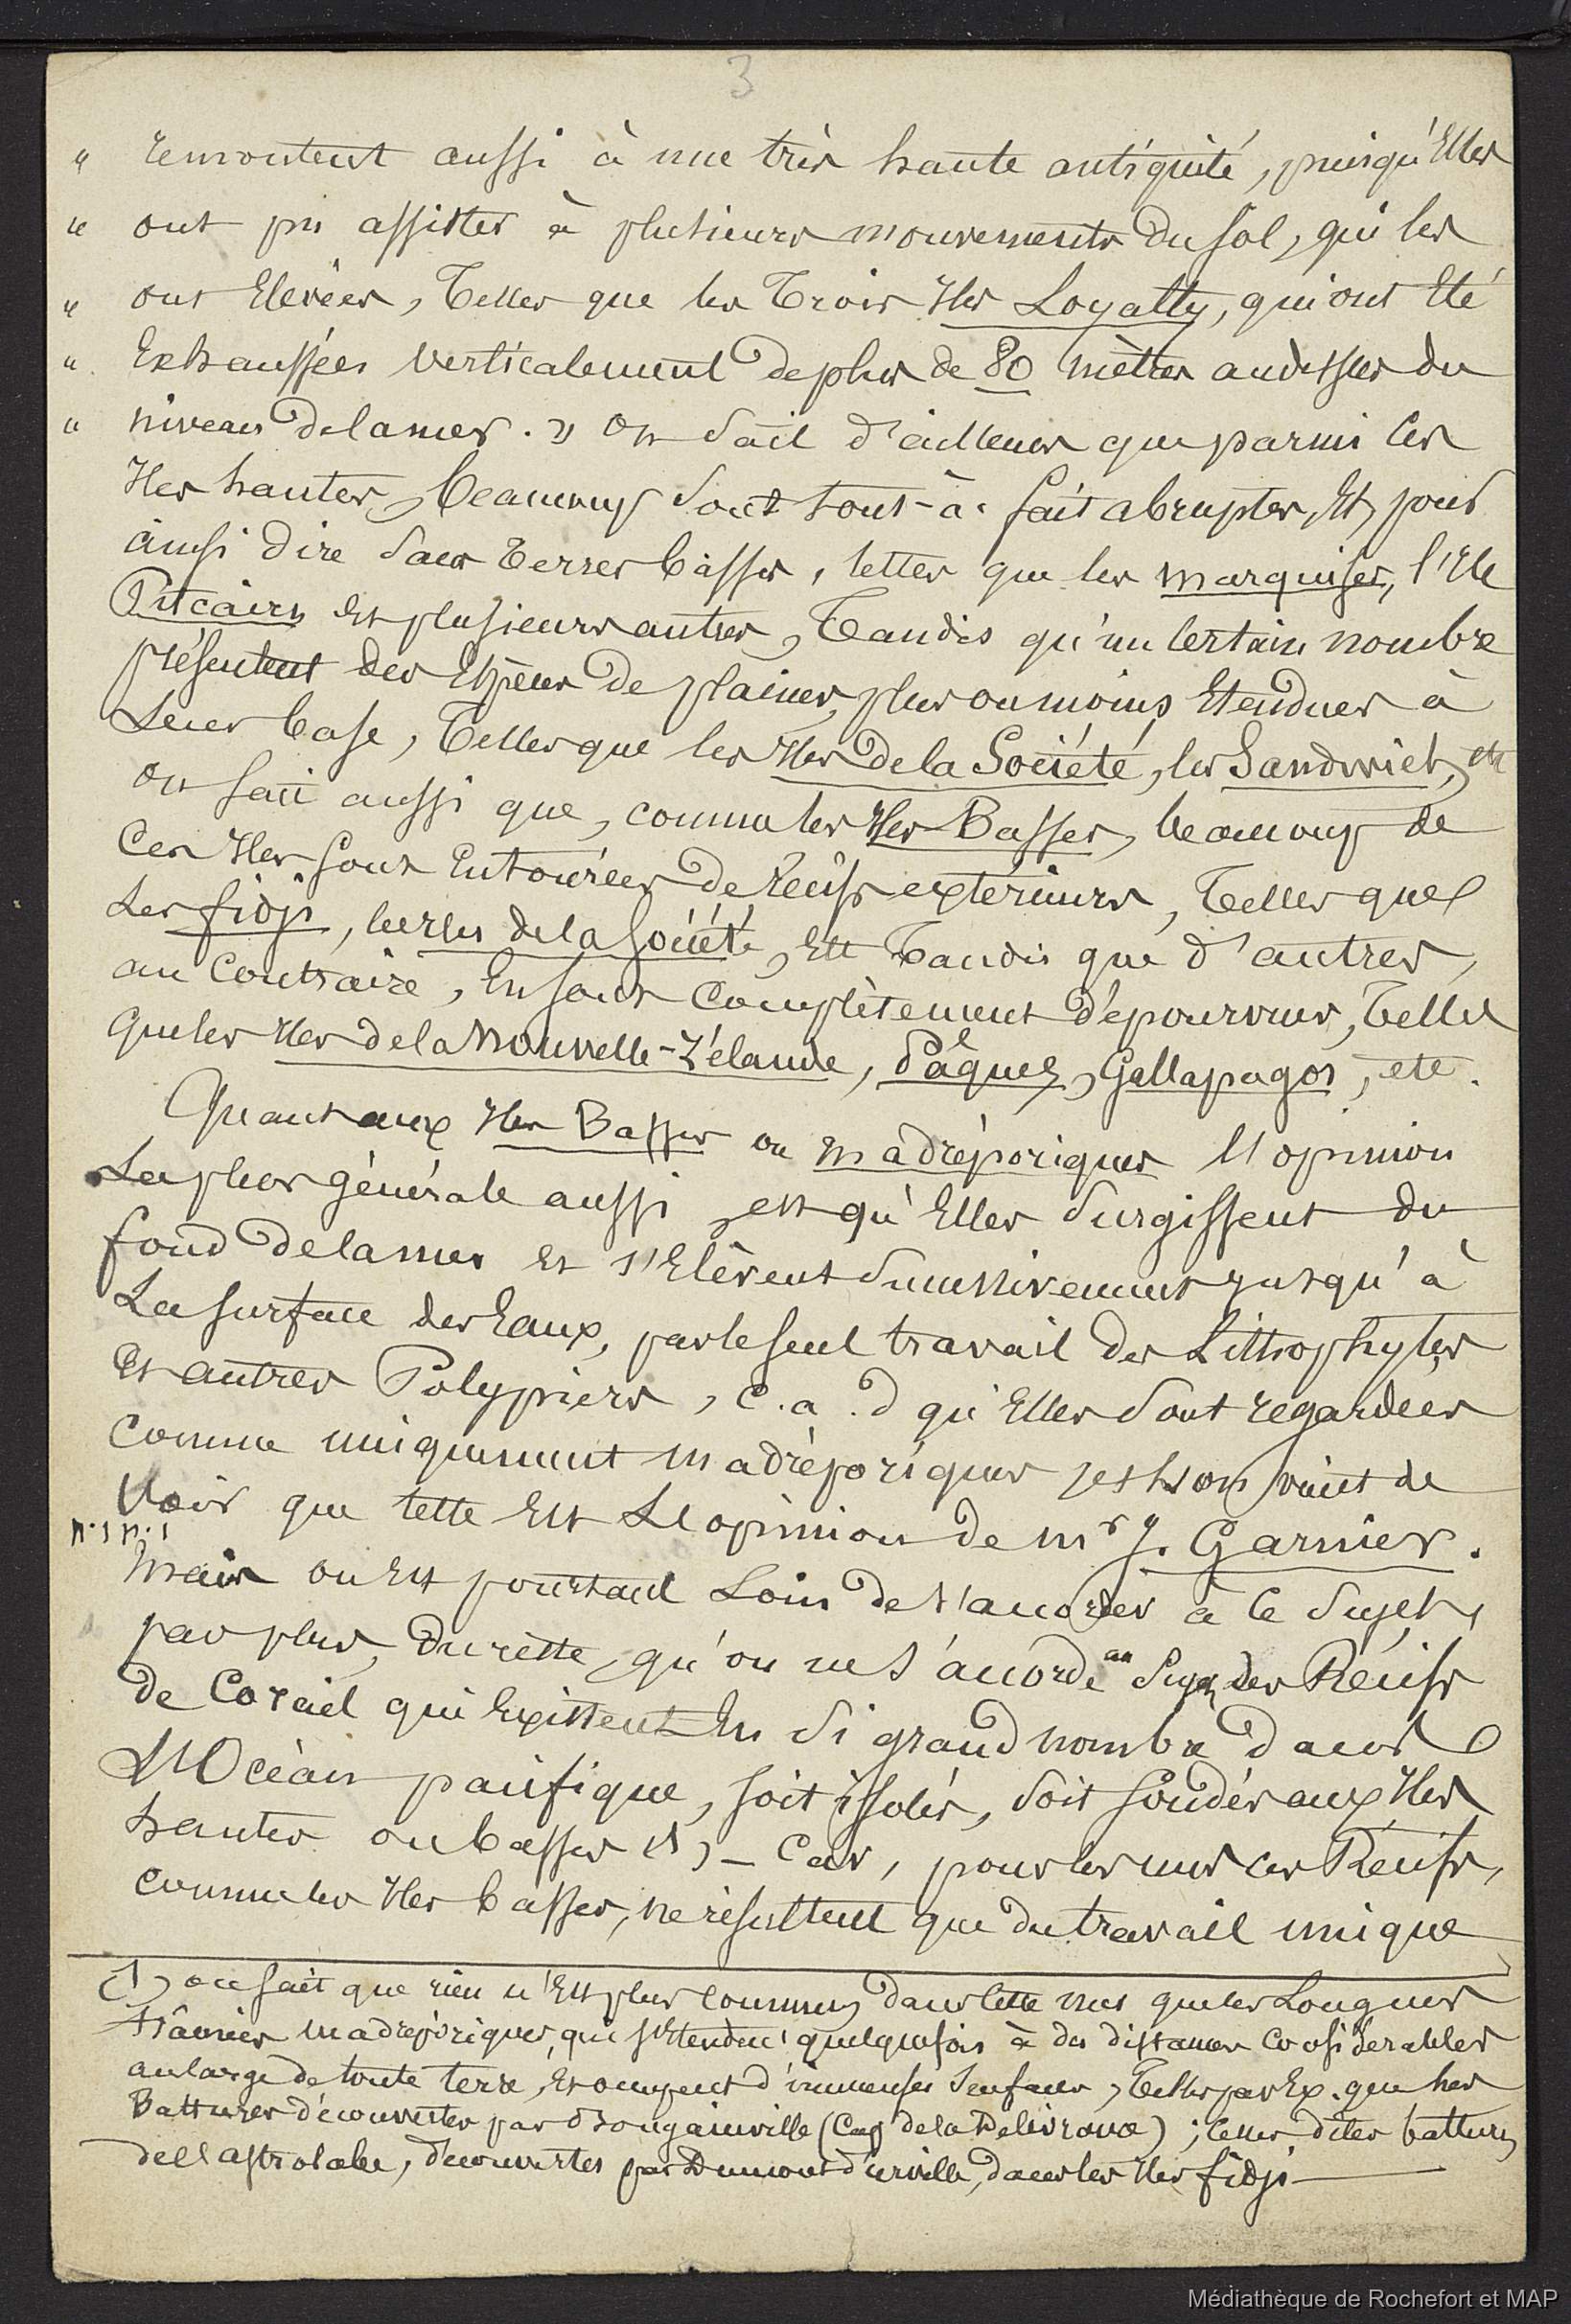 3
" remontent aussi à une très haute antiquité, puisqu'Elles
" ont pu assister à plusieurs mouvements du sol, qui les
" ont Elevées, Telles que les Trois Iles Loyalty, qui ont Eté
" Exhaussées verticalement de plus de 80 mètres audessus du
" niveau de la mer. " On sait d'ailleurs que parmi les
Iles hautes, beaucoup sont tout-à-fait abruptes, Et, pour
ainsi dire sans Terres basses, telles que les marquises, l'Ile
Pitcairn Et plusieurs autres, Tandis qu'un certain nombre
présentent des Espèces de plaines, plus ou moins Etendues à
Leur base, Telles que les Iles de la Société, les Sandwich, etc
On sait aussi que, comme les Iles Basses, beaucoup de
Ces Iles sont Entourées de Récifs extérieurs, Telles que
Les fidji, les Iles de la Société, Etc Tandis que d'autres,
au Contraire, En sont Complètement dépourvues, Telles
que les Iles de la Nouvelle-Zélande, Pâques, Gallapagos, etc.
Quant aux Iles Basses ou madréporiques l'opinion
La plus générale aussi, est qu'Elles surgissent du
fond de la mer Et s'Elèvent successivement jusqu'à
La surface des Eaux, par le seul travail des Lithophytes
Et autres Polypiers, c.a.d qu'Elles sont regardées
Comme uniquement madréporiques, et l'on vient de
Voir que cette Est L'opinion de mr J. Garnier.
Mais on Est pourtant Loin de s'accorder à ce sujet,
pas plus, du reste, qu'on ne s'accorde au sujet des Récifs
de Corail qui Existent En si grand nombre dans
L'Océan pacifique, soit isolés, soit soudés aux Iles
hautes ou basses (1) – Car, pour les uns ces Récifs,
comme les Iles basses, ne résultent que du travail unique
(1) on sait que rien n'Est plus commun dans cette mer que les Longues
trainées madréporiques, qui s'Etendent quelquefois à des distances Considérables
au large de toute terre, Et occupent d'immenses surfaces, Telles par Ex. que les
Battures découvertes par Bougainville (Cap de la Délivrance) ; celles dites battures
de l'astrolabe, découvertes par Dumont d'urville, dans les Iles fidji
Médiathèque de Rochefort et MAP